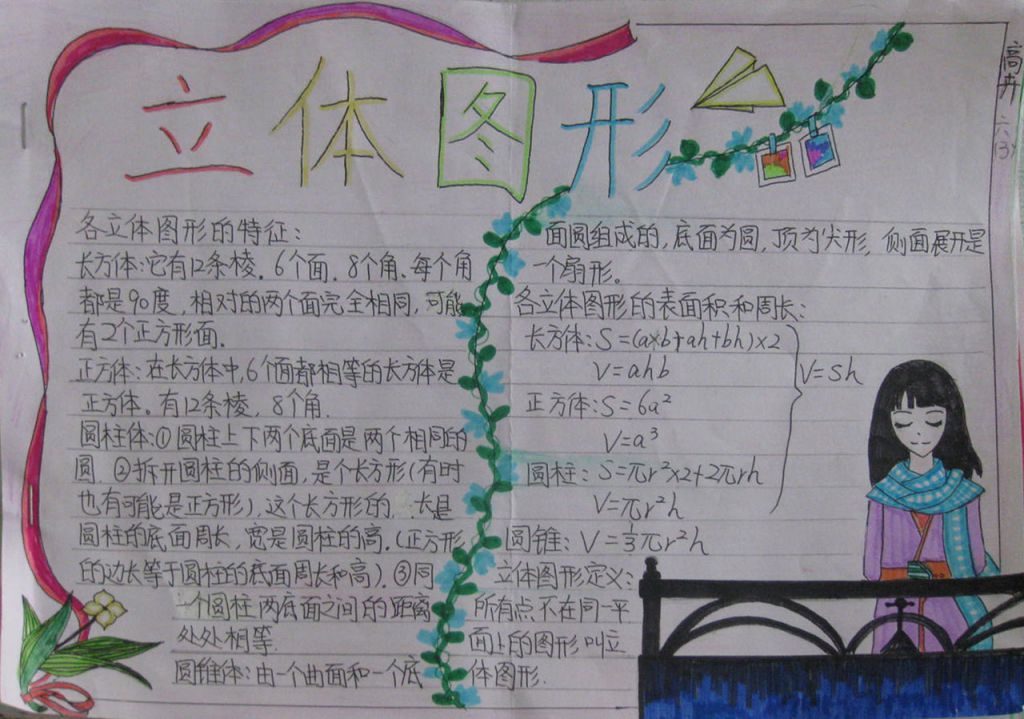 立体图形
高卉
六(3)
各立体图形的特征：
长方体：它有12条棱，6个面，8个角、每个角
都是90度，相对的两个面完全相同，可能
有2个正方形面．
正方体：在长方体中，6个面都相等的长方体是
正方体。有12条棱，8个角．
圆柱体：①圆柱上下两个底面是两个相同的
圆．②拆开圆柱的侧面，是个长方形（有时
也有可能是正方形），这个长方形的．长是
圆柱的底面周长，宽是圆柱的高．（正方形
的边长等于圆柱的底面周长和高）．③同
一个圆柱两底面之间的距离
处处相等．
圆锥体：由一个曲面和一个底
面圆组成的，底面为圆，顶为尖形，侧面展开是
一个扇形。
各立体图形的表面积和周长：
长方体：S=(a×b+ah+bh)×2
V=ahb
V=sh
正方体：S=6a²
V=a³
圆柱：S=πr²×2+2πrh
V=πr²h
圆锥：V=⅓πr²h
立体图形定义：
所有点不在同一平
面上的图形叫立
体图形．